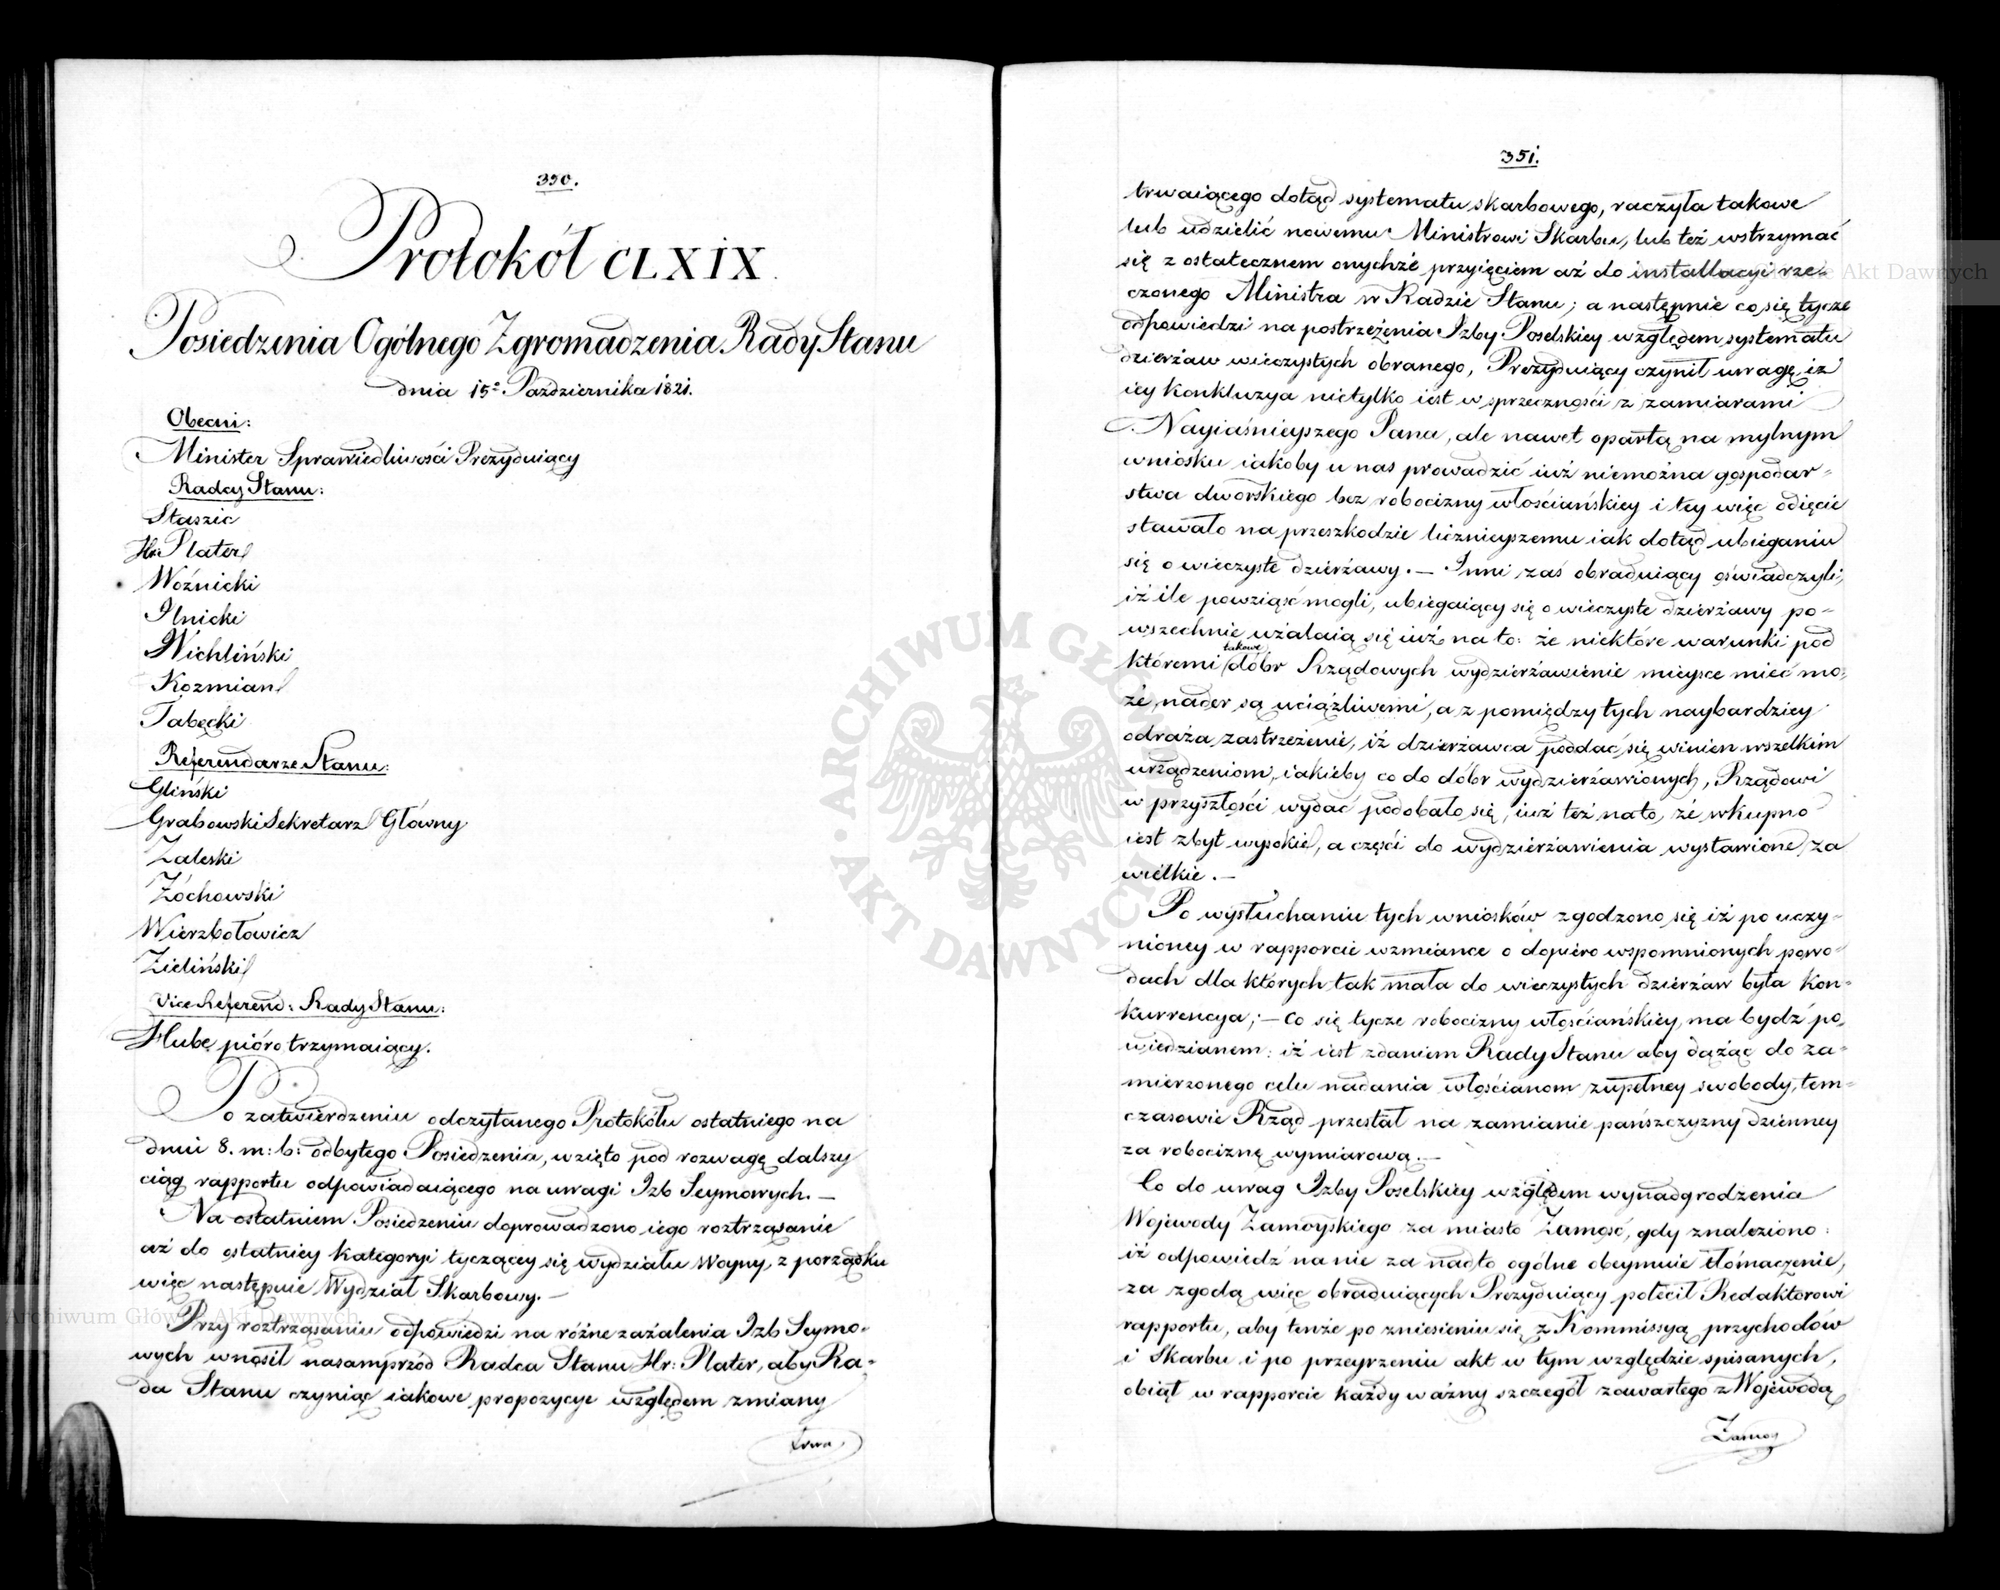 350.
Protokół CLXIX.
Posiedzenia Ogólnego Zgromadzenia Rady Stanu
dnia 15º Października 1821.
Obecni:
Minister Sprawiedliwości Prezyduiący
Radcy Stanu:
Staszic
Hr: Plater
Woźnicki
Ilnicki
Wichliński
Kozmian
Tabęcki
Referendarze Stanu:
Gliński
Grabowski Sekretarz Główny
Zaleski
Żóchowski
Wierzbołowicz
Zieliński
Vice Referend: Rady Stanu:
Hube pióro trzymaiący.
Po zatwierdzeniu odczytanego Protokółu ostatniego na
dniu 8. m: b: odbytego Posiedzenia, wzięto pod rozwagę dalszy
ciąg rapportu odpowiadaiącego na uwagi Izb Seymowych. —
Na ostatniem Posiedzeniu doprowadzono iego roztrząsanie
aż do ostatniey kategoryi tyczącey się wydziału Woyny, z porządku
więc następuie Wydział Skarbowy. —
Przy roztrząsaniu odpowiedzi na różne zażalenia Izb Seymo-
wych wnosił nasamprzód Radca Stanu Hr: Plater, aby Ra-
da Stanu czyniąc iakowe propozycye względem zmiany
trwa
351.
trwaiącego dotąd systematu skarbowego, raczyła takowe
lub udzielić nowemu Ministrowi Skarbu, lub też wstrzymać
się z ostatecznem onychże przyięciem aż do installacyi rze-
czonego Ministra w Radzie Stanu; a następnie co się tycze
odpowiedzi na postrzeżenia Izby Poselskiey względem systematu
dzierżaw wieczystych obranego, Prezyduiący czynił uwagę, iż
iey konkluzya nietylko iest w sprzeczności z zamiarami
Nayiaśnieyszego Pana, ale nawet opartą na mylnym
wniosku iakoby u nas prowadzić iuż niemożna gospodar-
stwa dworskiego bez robocizny włościańskiey i tey więc odięcie
stawało na przeszkodzie licznieyszemu iak dotąd ubieganiu
się o wieczyste dzierżawy. — Inni zaś obraduiący oświadczyli,
iż ile powziąść mogli, ubiegaiący się o wieczyste dzierżawy po-
wszechnie użalaią się iuż na to: że niektóre warunki pod
takowe
któremi dóbr Rządowych wydzierżawienie mieysce mieć mo-
że, nader są uciążliwemi, a z pomiędzy tych naybardziey
odraża zastrzeżenie, iż dzierżawca poddać się winien wszelkim
urządzeniom, iakieby co do dóbr wydzierżawionych, Rządowi
w przyszłości wydać podobało się, iuż też na to, że wkupno
iest zbyt wysokie, a części do wydzierżawienia wystawione, za
wielkie. —
Po wysłuchaniu tych wniosków zgodzono się iż po uczy-
nioney w rapporcie wzmiance o dopiero wspomnionych powo-
dach dla których tak mała do wieczystych dzierżaw była kon-
kurrencya; — co się tycze robocizny włościańskiey, ma bydź po-
wiedzianem: iż iest zdaniem Rady Stanu aby dążąc do za-
mierzonego celu nadania włościanom zupełney swobody, tym-
czasowie Rząd przestał na zamianie pańszczyzny dzienney
za robociznę wymiarową. —
Co do uwag Izby Poselskiey względem wynadgrodzenia
Wojewody Zamoyskiego za miasto Zamość, gdy znaleziono:
iż odpowiedź na nie za nadto ogólne obeymuie tłómaczenie,
za zgodą więc obraduiących Prezyduiący polecił Redaktorowi
rapportu, aby tenże po zniesieniu się z Kommissyą przychodów
i Skarbu i po przeyrzeniu akt w tym względzie spisanych,
obiął w rapporcie każdy ważny szczegół zawartego z Wojewodą
Zamoy
ARCHIWUM GŁÓWNE AKT DAWNYCH
Archiwum Główne Akt Dawnych
Archiwum Główne Akt Dawnych